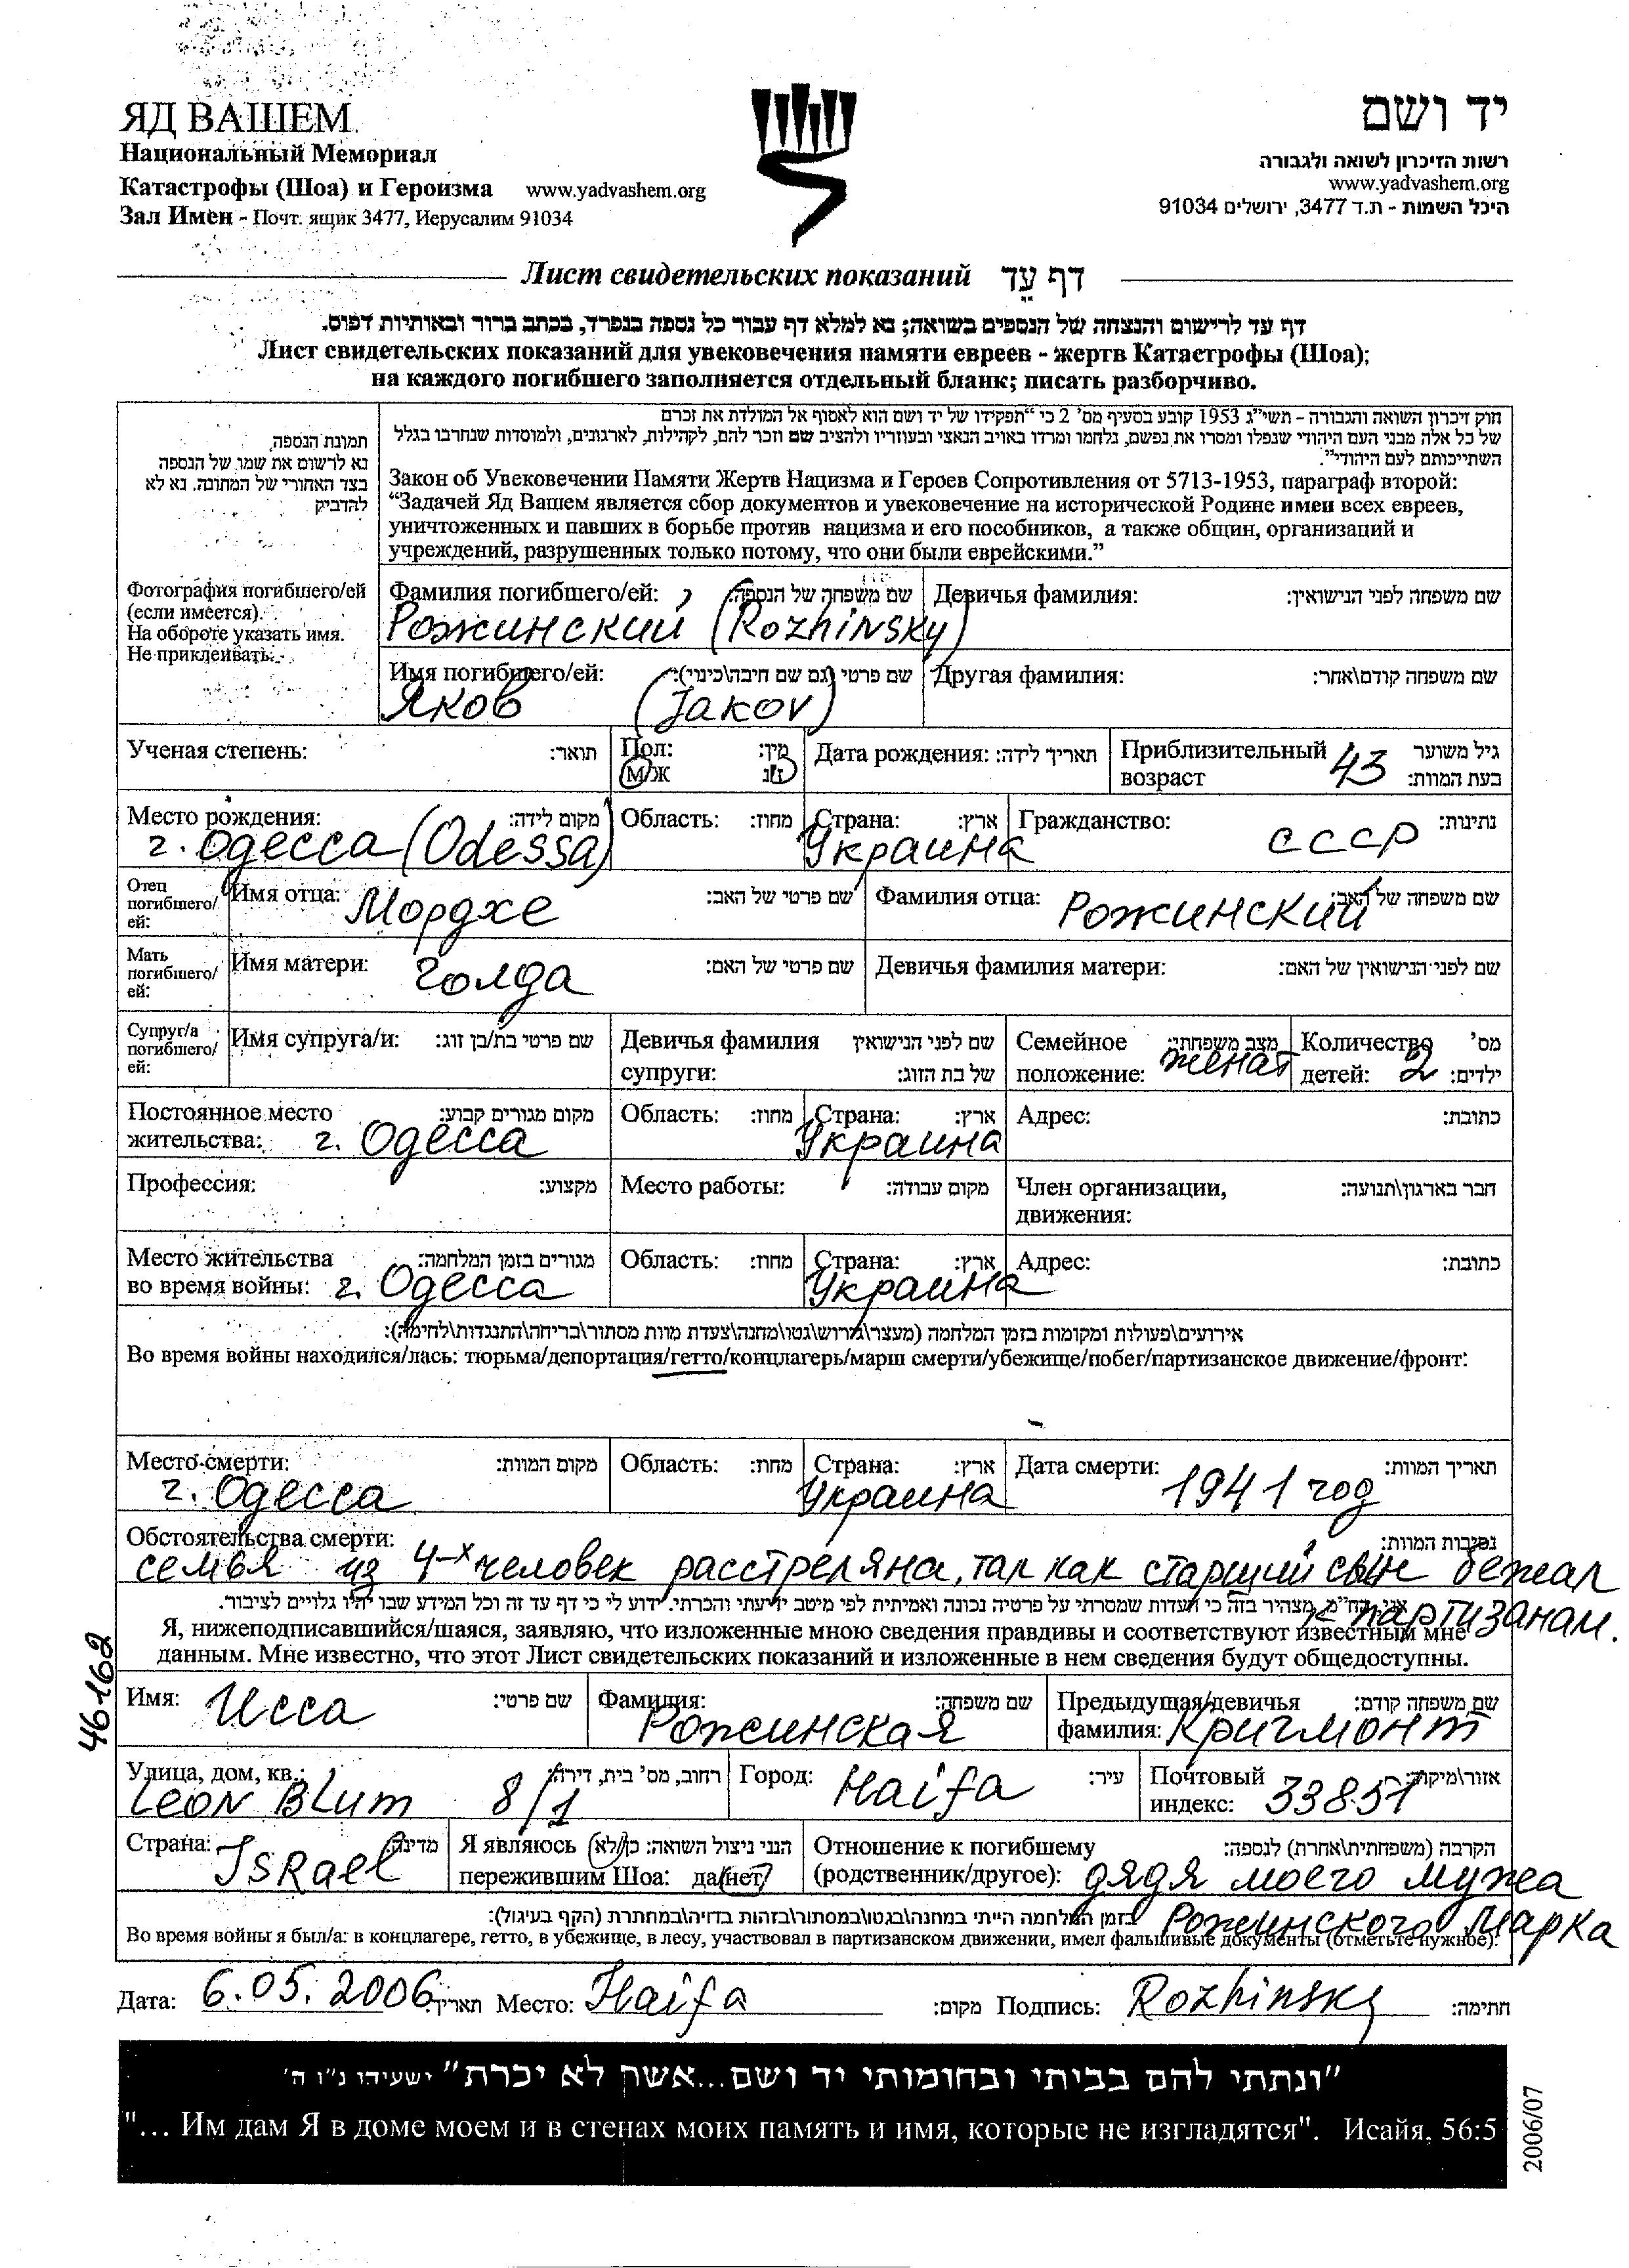 ЯД ВАШЕМ
Национальный Мемориал
Катастрофы (Шоа) и Героизма www.yadvashem.org
Зал Имен - Почт. ящик 3477, Иерусалим 91034
יד ושם
רשות הזיכרון לשואה ולגבורה
www.yadvashem.org
היכל השמות - ת.ד 3477, ירושלים 91034
Лист свидетельских показаний דף עֵד
דף עד לרישום והנצחה של הנספים בשואה; נא למלא דף עבור כל נספה בנפרד, בכתב ברור ובאותיות דפוס.
Лист свидетельских показаний для увековечения памяти евреев - жертв Катастрофы (Шоа);
на каждого погибшего заполняется отдельный бланк; писать разборчиво.
תמונת הנספה,
נא לרשום את שמו של הנספה
בצד האחורי של התמונה. נא לא
להדביק
חוק זיכרון השואה והגבורה - תשי"ג 1953 קובע בסעיף מס' 2 כי "תפקידו של יד ושם הוא לאסוף אל המולדת את זכרם
של כל אלה מבני העם היהודי שנפלו ומסרו את נפשם, נלחמו ומרדו באויב הנאצי ובעוזריו ולהציב שם וזכר להם, לקהילות, לארגונים, ולמוסדות שנחרבו בגלל
השתייכותם לעם היהודי".
Закон об Увековечении Памяти Жертв Нацизма и Героев Сопротивления от 5713-1953, параграф второй:
"Задачей Яд Вашем является сбор документов и увековечение на исторической Родине имен всех евреев,
уничтоженных и павших в борьбе против нацизма и его пособников, а также общин, организаций и
учреждений, разрушенных только потому, что они были еврейскими."
Фотография погибшего/ей
(если имеется).
На обороте указать имя.
Не приклеивать.
Фамилия погибшего/ей: שם משפחה של הנספה: Девичья фамилия: שם משפחה לפני הנישואין:
Рожинский (Rozhinsky)
Имя погибшего/ей: שם פרטי (גם שם חיבה\כינוי): Другая фамилия: שם משפחה קודם\אחר:
Яков (Jakov)
Ученая степень: תואר: Пол: מין: Дата рождения: תאריך לידה: Приблизительный גיל משוער
М/Ж ז\נ возраст 43 בעת המוות:
Место рождения: מקום לידה: Область: מחוז: Страна: ארץ: Гражданство: נתינות:
г. Одесса (Odessa) Украина СССР
Отец погибшего/ей: Имя отца: Мордхе שם פרטי של האב: Фамилия отца: Рожинский שם משפחה של האב:
Мать погибшего/ей: Имя матери: Голда שם פרטי של האם: Девичья фамилия матери: שם לפני הנישואין של האם:
Супруг/а погибшего/ей: Имя супруга/и: שם פרטי בת/בן זוג: Девичья фамилия שם לפני הנישואין Семейное מצב משפחתי: Количество מס'
супруги: של בת הזוג: положение: женат детей: 2 ילדים:
Постоянное место מקום מגורים קבוע: Область: מחוז: Страна: ארץ: Адрес: כתובת:
жительства: г. Одесса Украина
Профессия: מקצוע: Место работы: מקום עבודה: Член организации, חבר בארגון\תנועה:
движения:
Место жительства מגורים בזמן המלחמה: Область: מחוז: Страна: ארץ: Адрес: כתובת:
во время войны: г. Одесса Украина
אירועים\פעולות ומקומות בזמן המלחמה (מעצר\גירוש\גטו\מחנה\צעדת מוות מסתור\בריחה\התנגדות\לחימה):
Во время войны находился/лась: тюрьма/депортация/гетто/концлагерь/марш смерти/убежище/побег/партизанское движение/фронт:
Место смерти: מקום המוות: Область: מחוז: Страна: ארץ: Дата смерти: תאריך המוות:
г. Одесса Украина 1941 год
Обстоятельства смерти: נסיבות המוות:
семья из 4-х человек расстреляна, так как старший сын бежал
к партизанам.
אני, הח"מ, מצהיר בזה כי העדות שמסרתי על פרטיה נכונה ואמיתית לפי מיטב ידיעתי והכרתי. ידוע לי כי דף עד זה וכל המידע שבו יהיו גלויים לציבור.
Я, нижеподписавшийся/шаяся, заявляю, что изложенные мною сведения правдивы и соответствуют известным мне
данным. Мне известно, что этот Лист свидетельских показаний и изложенные в нем сведения будут общедоступны.
46162
Имя: Исса שם פרטי: Фамилия: שם משפחה: Предыдущая/девичья שם משפחה קודם:
Рожинская фамилия: Кригмонт
Улица, дом, кв.: רחוב, מס' בית, דירה: Город: Haifa עיר: Почтовый אזור\מיקוד:
Leon Blum 8/1 индекс: 33851
Страна: Israel מדינה: Я являюсь הנני ניצול השואה: כן/לא Отношение к погибшему הקרבה (משפחתית\אחרת) לנספה:
пережившим Шоа: да/нет (родственник/другое): дядя моего мужа
Рожинского Марка
בזמן המלחמה הייתי במחנה\בגטו\במסתור\בזהות בדויה\במחתרת (הקף בעיגול):
Во время войны я был/а: в концлагере, гетто, в убежище, в лесу, участвовал в партизанском движении, имел фальшивые документы (отметьте нужное):
Дата: 6.05.2006 תאריך: Место: Haifa מקום: Подпись: Rozhinsky חתימה:
"ונתתי להם בביתי ובחומותי יד ושם...אשר לא יכרת" ישעיהו נ"ו ה'
"... Им дам Я в доме моем и в стенах моих память и имя, которые не изгладятся". Исайя, 56:5
2006/07